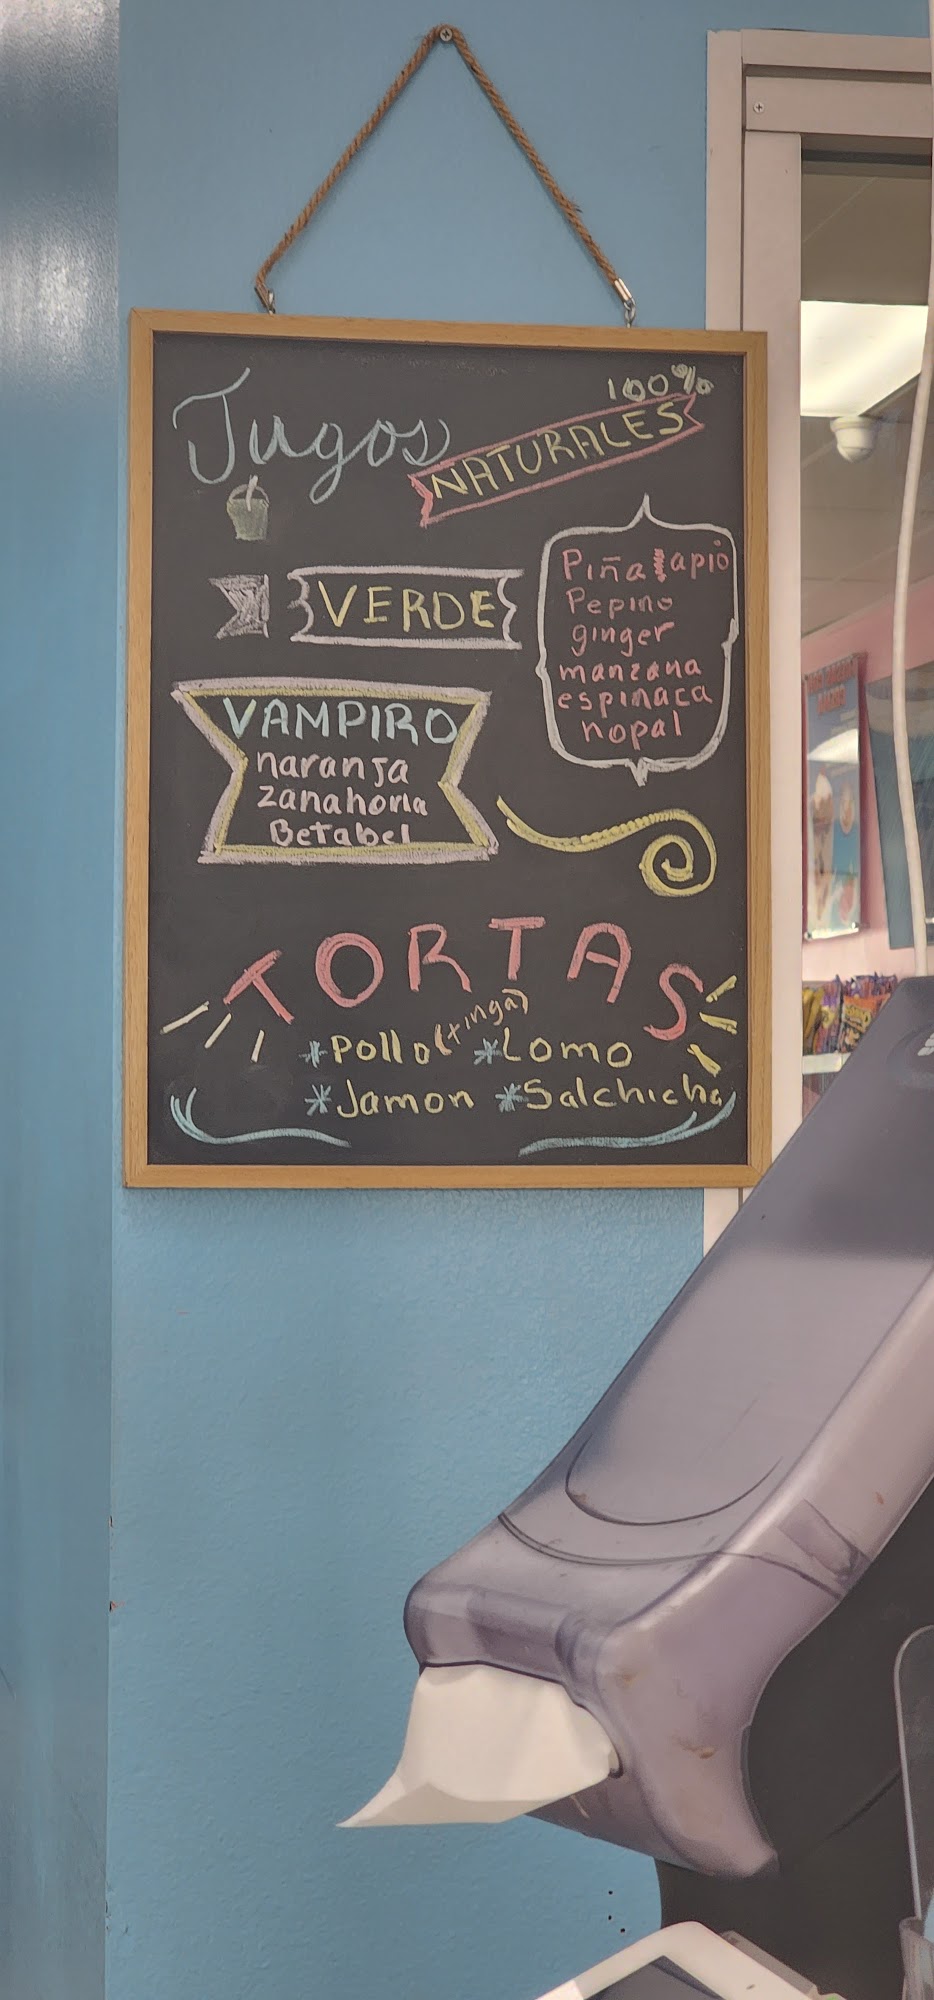 Jugos
100%
NATURALES
VERDE
Piña apio
Pepino
ginger
manzana
espinaca
nopal
VAMPIRO
naranja
zanahoria
Betabel
TORTAS
*Pollo (tinga) *Lomo
*Jamon *Salchicha